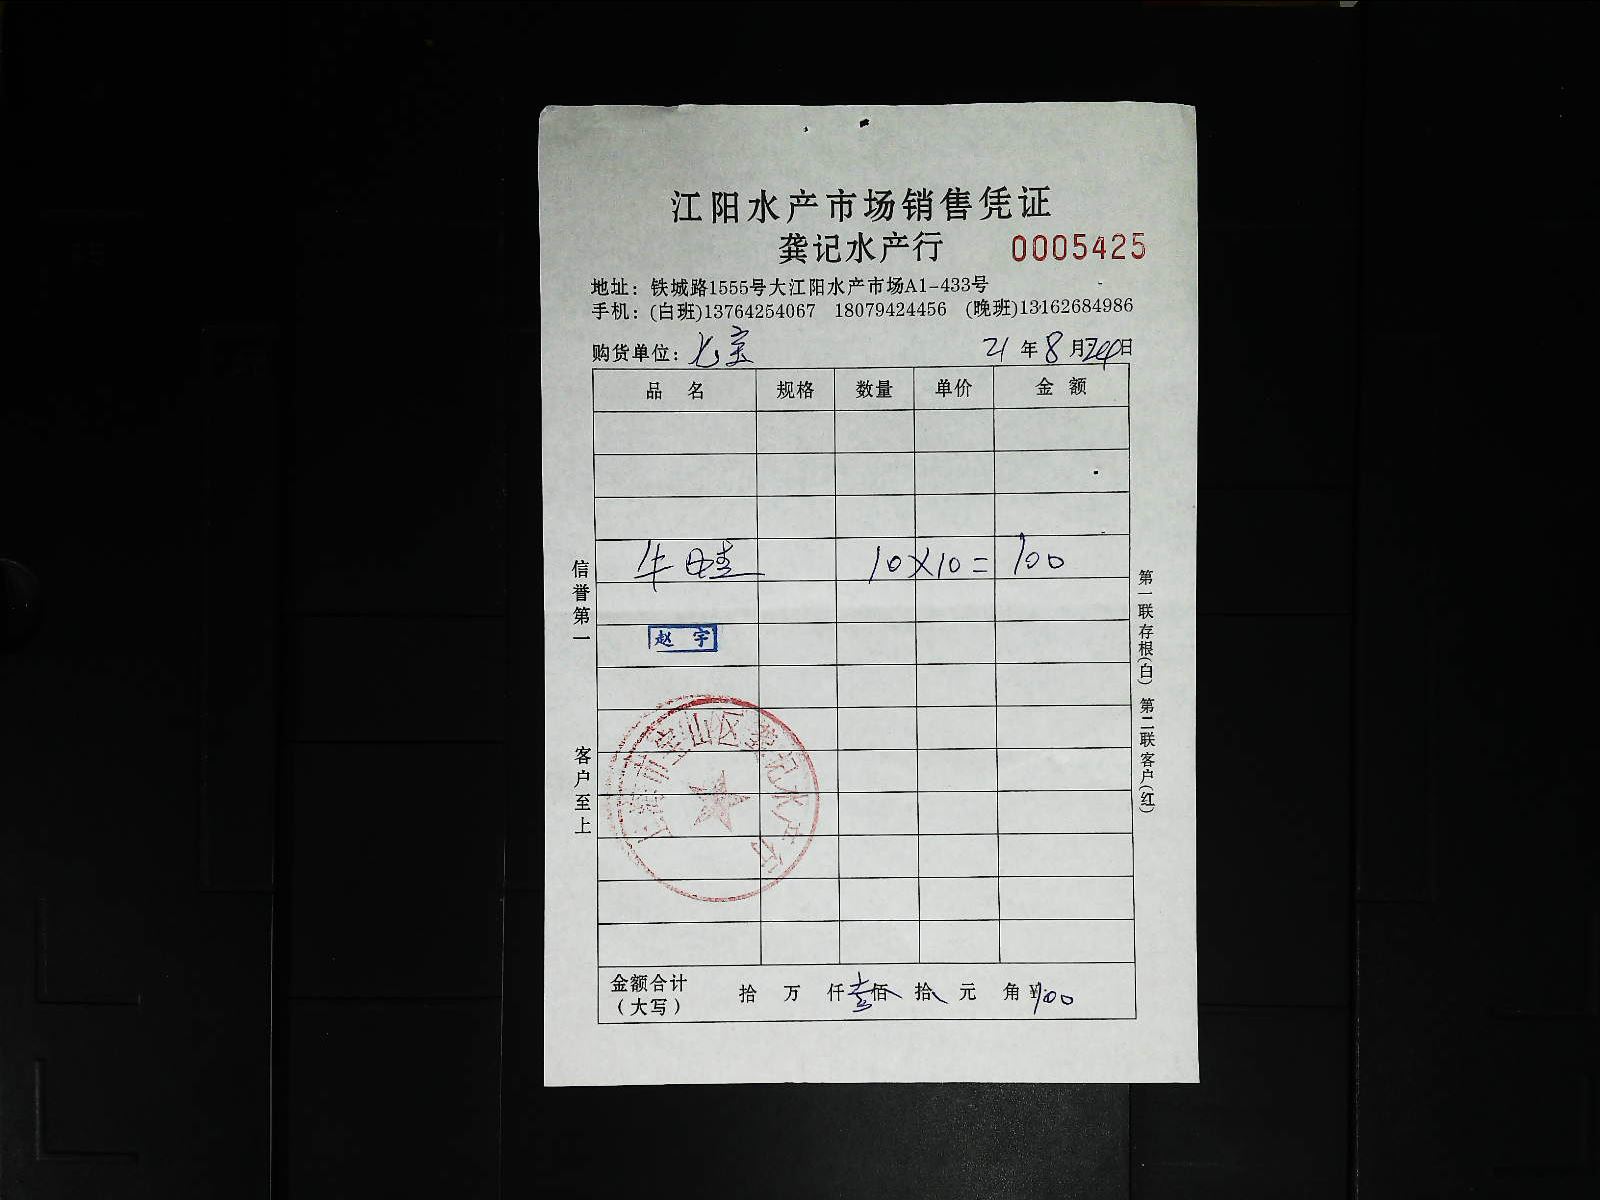 江阳水产市场销售凭证
龚记水产行 0005425
地址：铁城路1555号大江阳水产市场A1-433号
手机：(白班)13764254067 18079424456 (晚班)13162684986
购货单位：七宝 21年8月24日
品 名 规格 数量 单价 金 额
牛蛙 10×10= 100
赵 宇
上海市宝山区龚记水产行
金额合计（大写） 拾 万 仟壹佰 拾 元 角 ¥100
信誉第一 客户至上
第一联存根(白) 第二联客户(红)